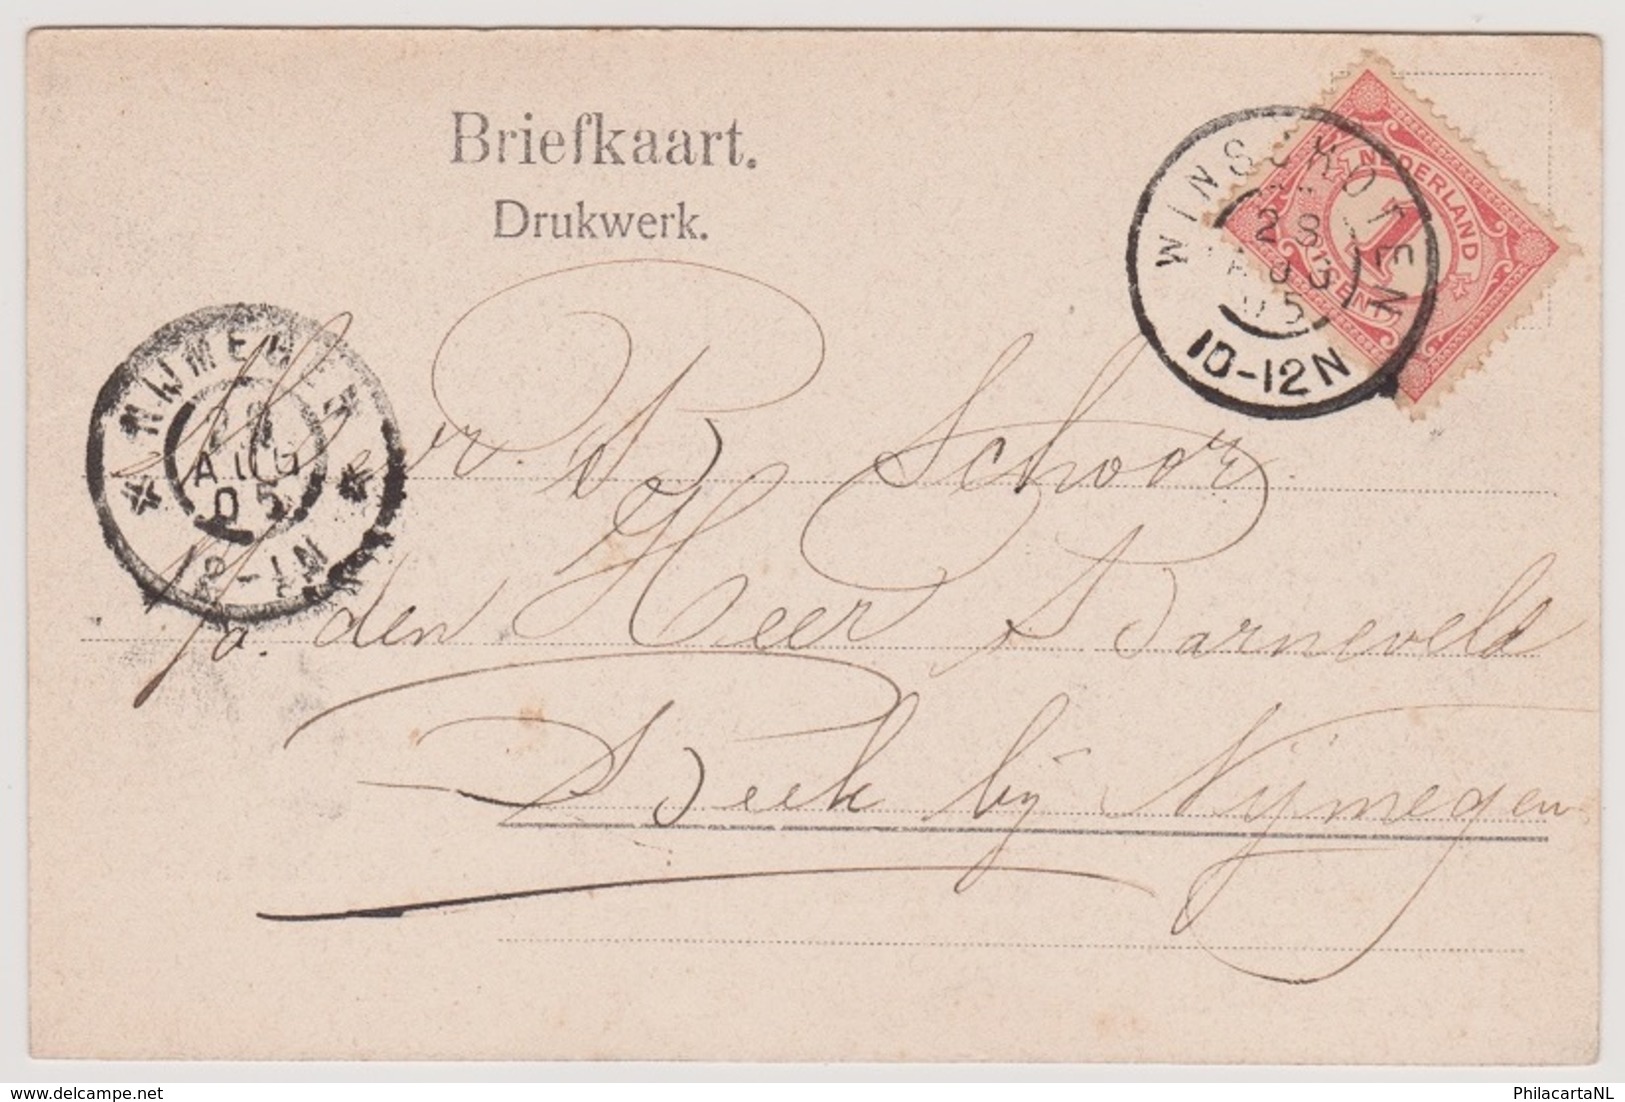 Briefkaart.
Drukwerk.
NEDERLAND
1
CENT
WINSCHOTEN
28
AUG
05
10-12N
NIJMEGEN
AUG
05
12-1N
B. Schoor
p/a. den Heer Barneveld
Beek bij Nijmegen
www.delcampe.net
PhilacartaNL